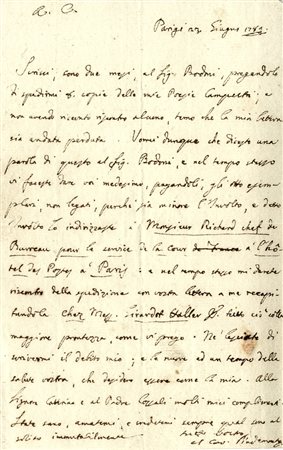 A. C.
Parigi 22 Giugno 1789
Scrissi, sono due mesi, al Sig. Bodoni, pregandolo
di spedirmi 8. copie delle mie Poesie Campestri; e
non avendo ricevuto risposta alcuna, temo che la mia lettera
sia andata perduta. Vorrei dunque che diceste una
parola di questo al Sig. Bodoni, e nel tempo stesso
vi faceste dare voi medesimo, pagandoli, gli otto esem-
plari, non legati, perchè sia minore l'involto, e detto
involto lo indirizzaste à Monsieur Richard chef de
Bureau pour le service de la Cour de France à l'hô-
tel des Postes à Paris: e nel tempo stesso mi darete
riscontro della spedizione con vostra lettera a me recapi-
tandola Chez Mess. Girardot Haller &c. tutto ciò colla
maggiore prontezza, come vi prego. Nè lasciate di
scrivermi il debito mio; e la nuova ad un tempo della
salute vostra, che desidero essere come la mia. Alla
Signora Catterina e al Padre molti miei complimenti.
State sano, amatemi, e credetemi sempre qual sono al
solito immutabilmente
tutto vostro
al Cav. Pindemonte